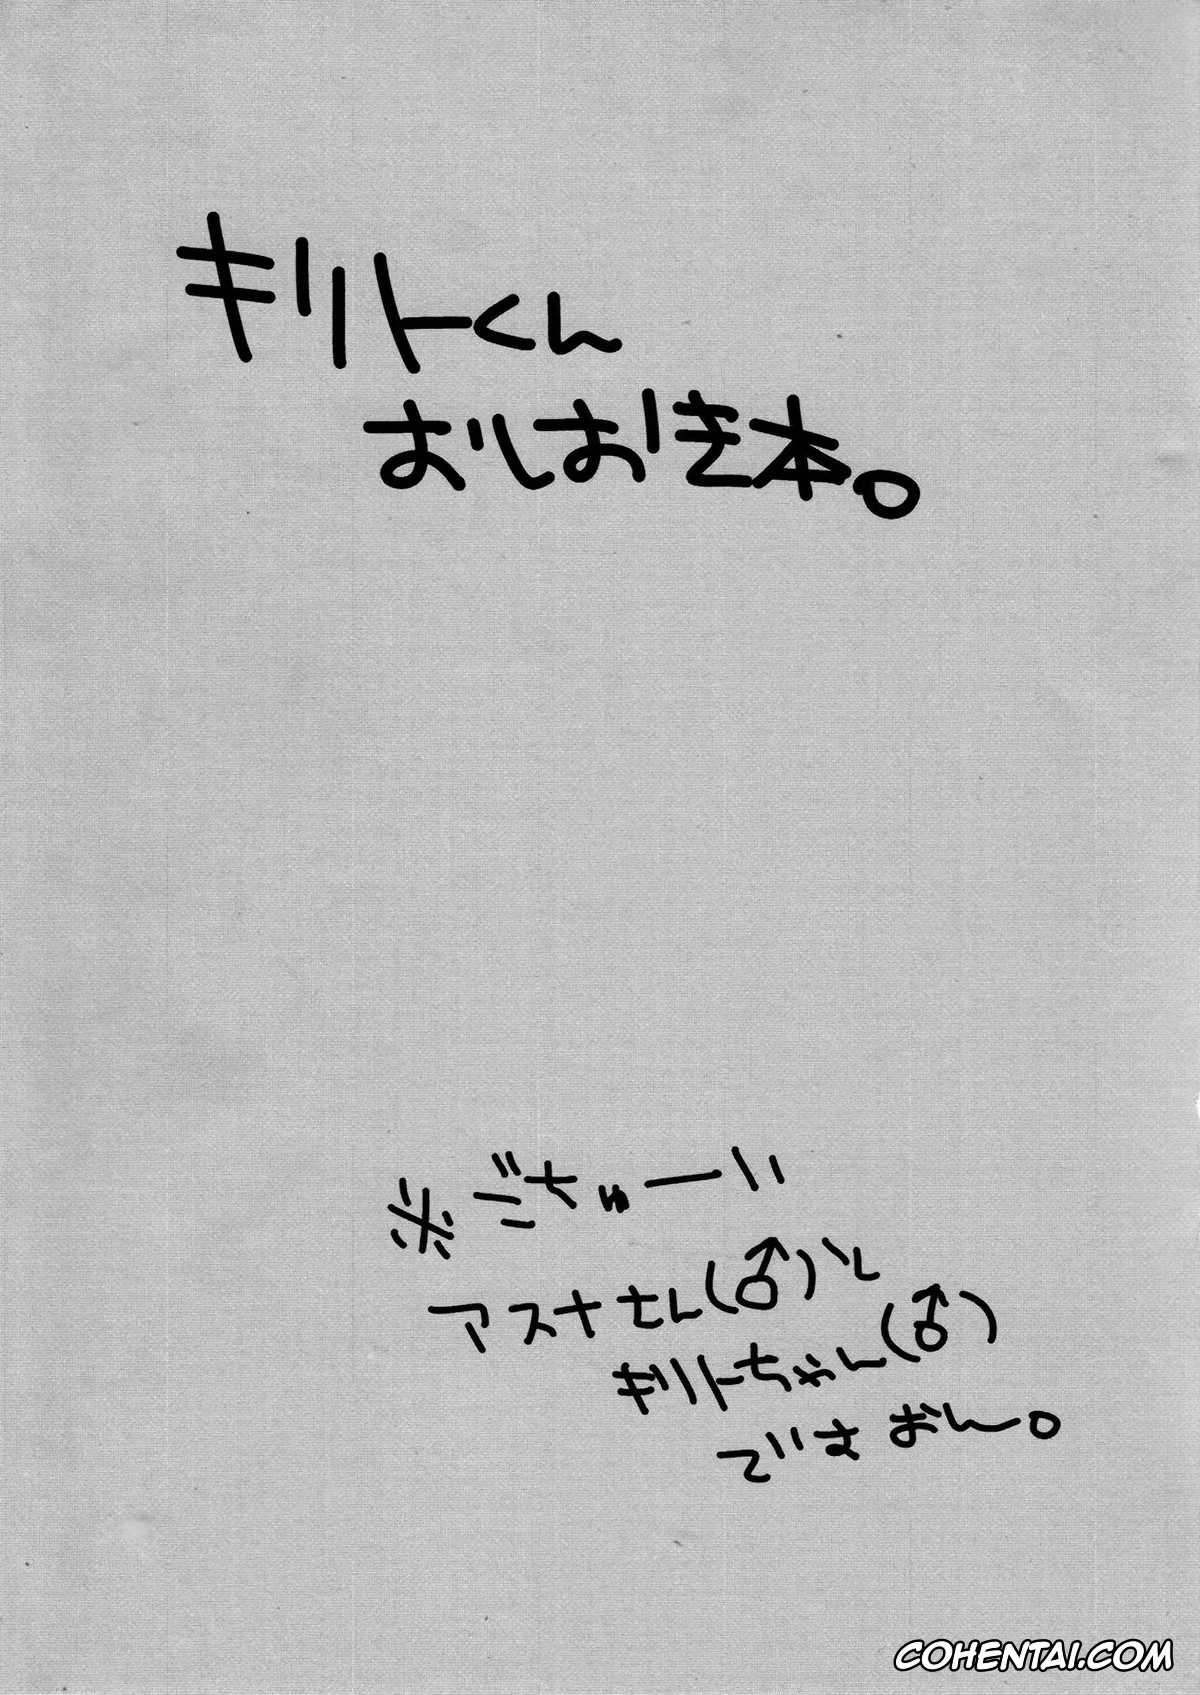 キリトくん
おしおき本。
※ごちゅーい
アスナさん(♂)と
キリトちゃん(♂)
でいさおん。
COHENTAI.COM